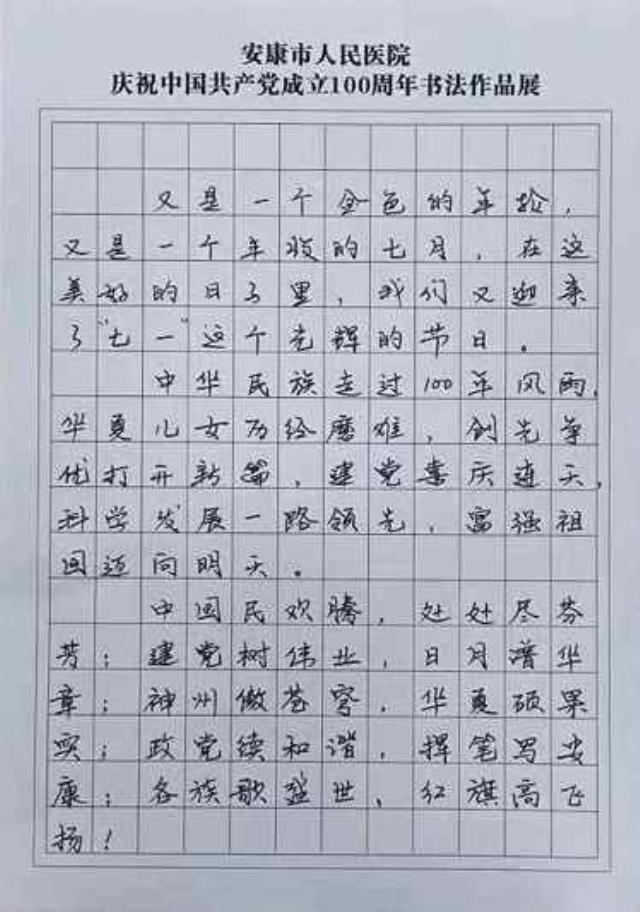 安康市人民医院
庆祝中国共产党成立100周年书法作品展
又是一个金色的年轮，
又是一个丰收的七月，在这
美好的日子里，我们又迎来
了“七一”这个光辉的节日。
中华民族走过100年风雨，
华夏儿女历经磨难，创先争
优打开新篇，建党喜庆连天，
科学发展一路领先，富强祖
国迈向明天。
中国民欢腾，处处尽芬
芳；建党树伟业，日月谱华
章；神州傲苍穹，华夏硕果
实；政党续和谐，挥笔写安
康；各族歌盛世，红旗高飞
扬！